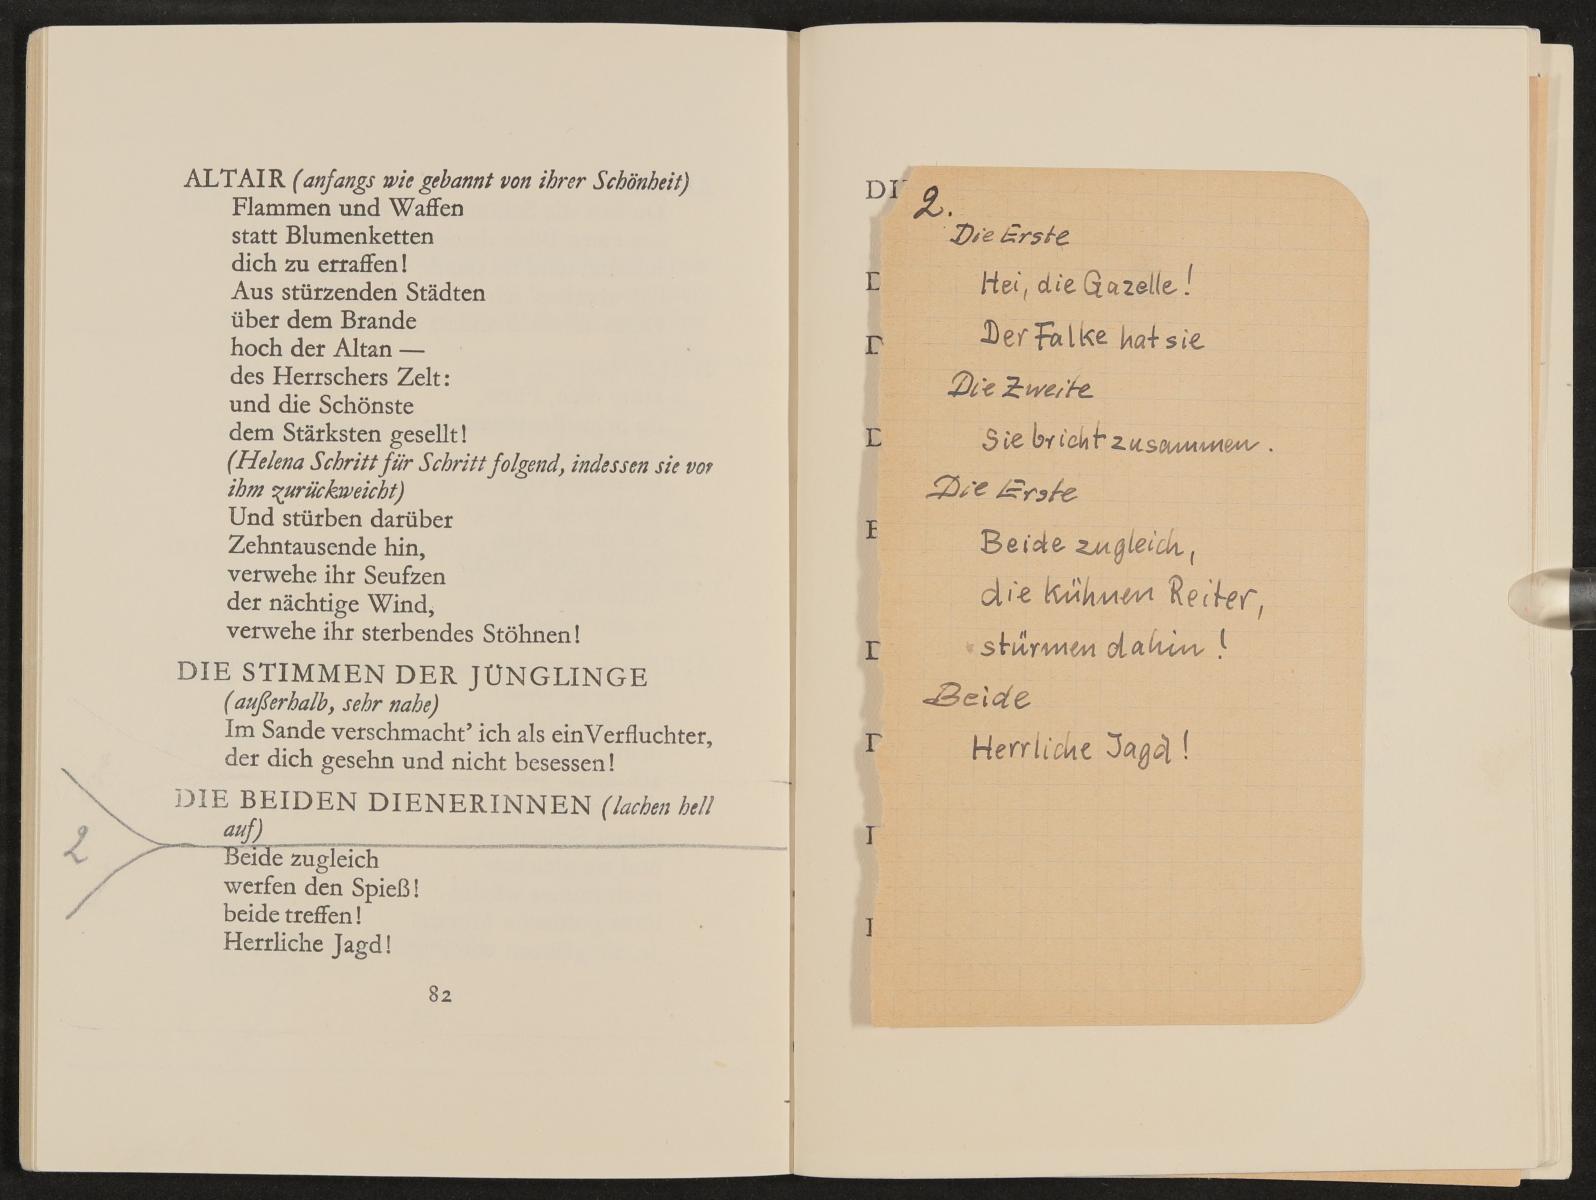 ALTAIR (anfangs wie gebannt von ihrer Schönheit)
Flammen und Waffen
statt Blumenketten
dich zu erraffen!
Aus stürzenden Städten
über dem Brande
hoch der Altan —
des Herrschers Zelt:
und die Schönste
dem Stärksten gesellt!
(Helena Schritt für Schritt folgend, indessen sie vor
ihm zurückweicht)
Und stürben darüber
Zehntausende hin,
verwehe ihr Seufzen
der nächtige Wind,
verwehe ihr sterbendes Stöhnen!
DIE STIMMEN DER JÜNGLINGE
(außerhalb, sehr nahe)
Im Sande verschmacht’ ich als ein Verfluchter,
der dich gesehn und nicht besessen!
DIE BEIDEN DIENERINNEN (lachen hell
auf)
2
Beide zugleich
werfen den Spieß!
beide treffen!
Herrliche Jagd!
82
2.
Die Erste
Hei, die Gazelle!
Der Falke hat sie
Die Zweite
Sie bricht zusammen.
Die Erste
Beide zugleich,
die kühnen Reiter,
stürmen dahin!
Beide
Herrliche Jagd!